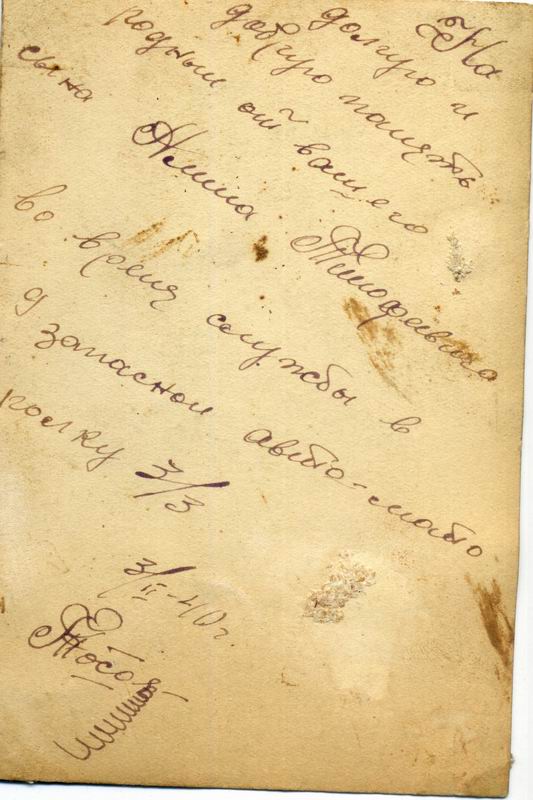 На
долгую и
добрую память
родным от вашего
сына Тимофеевича
во время службы в
9 запасном авто-мото
полку 3/3
3/II-40 г.